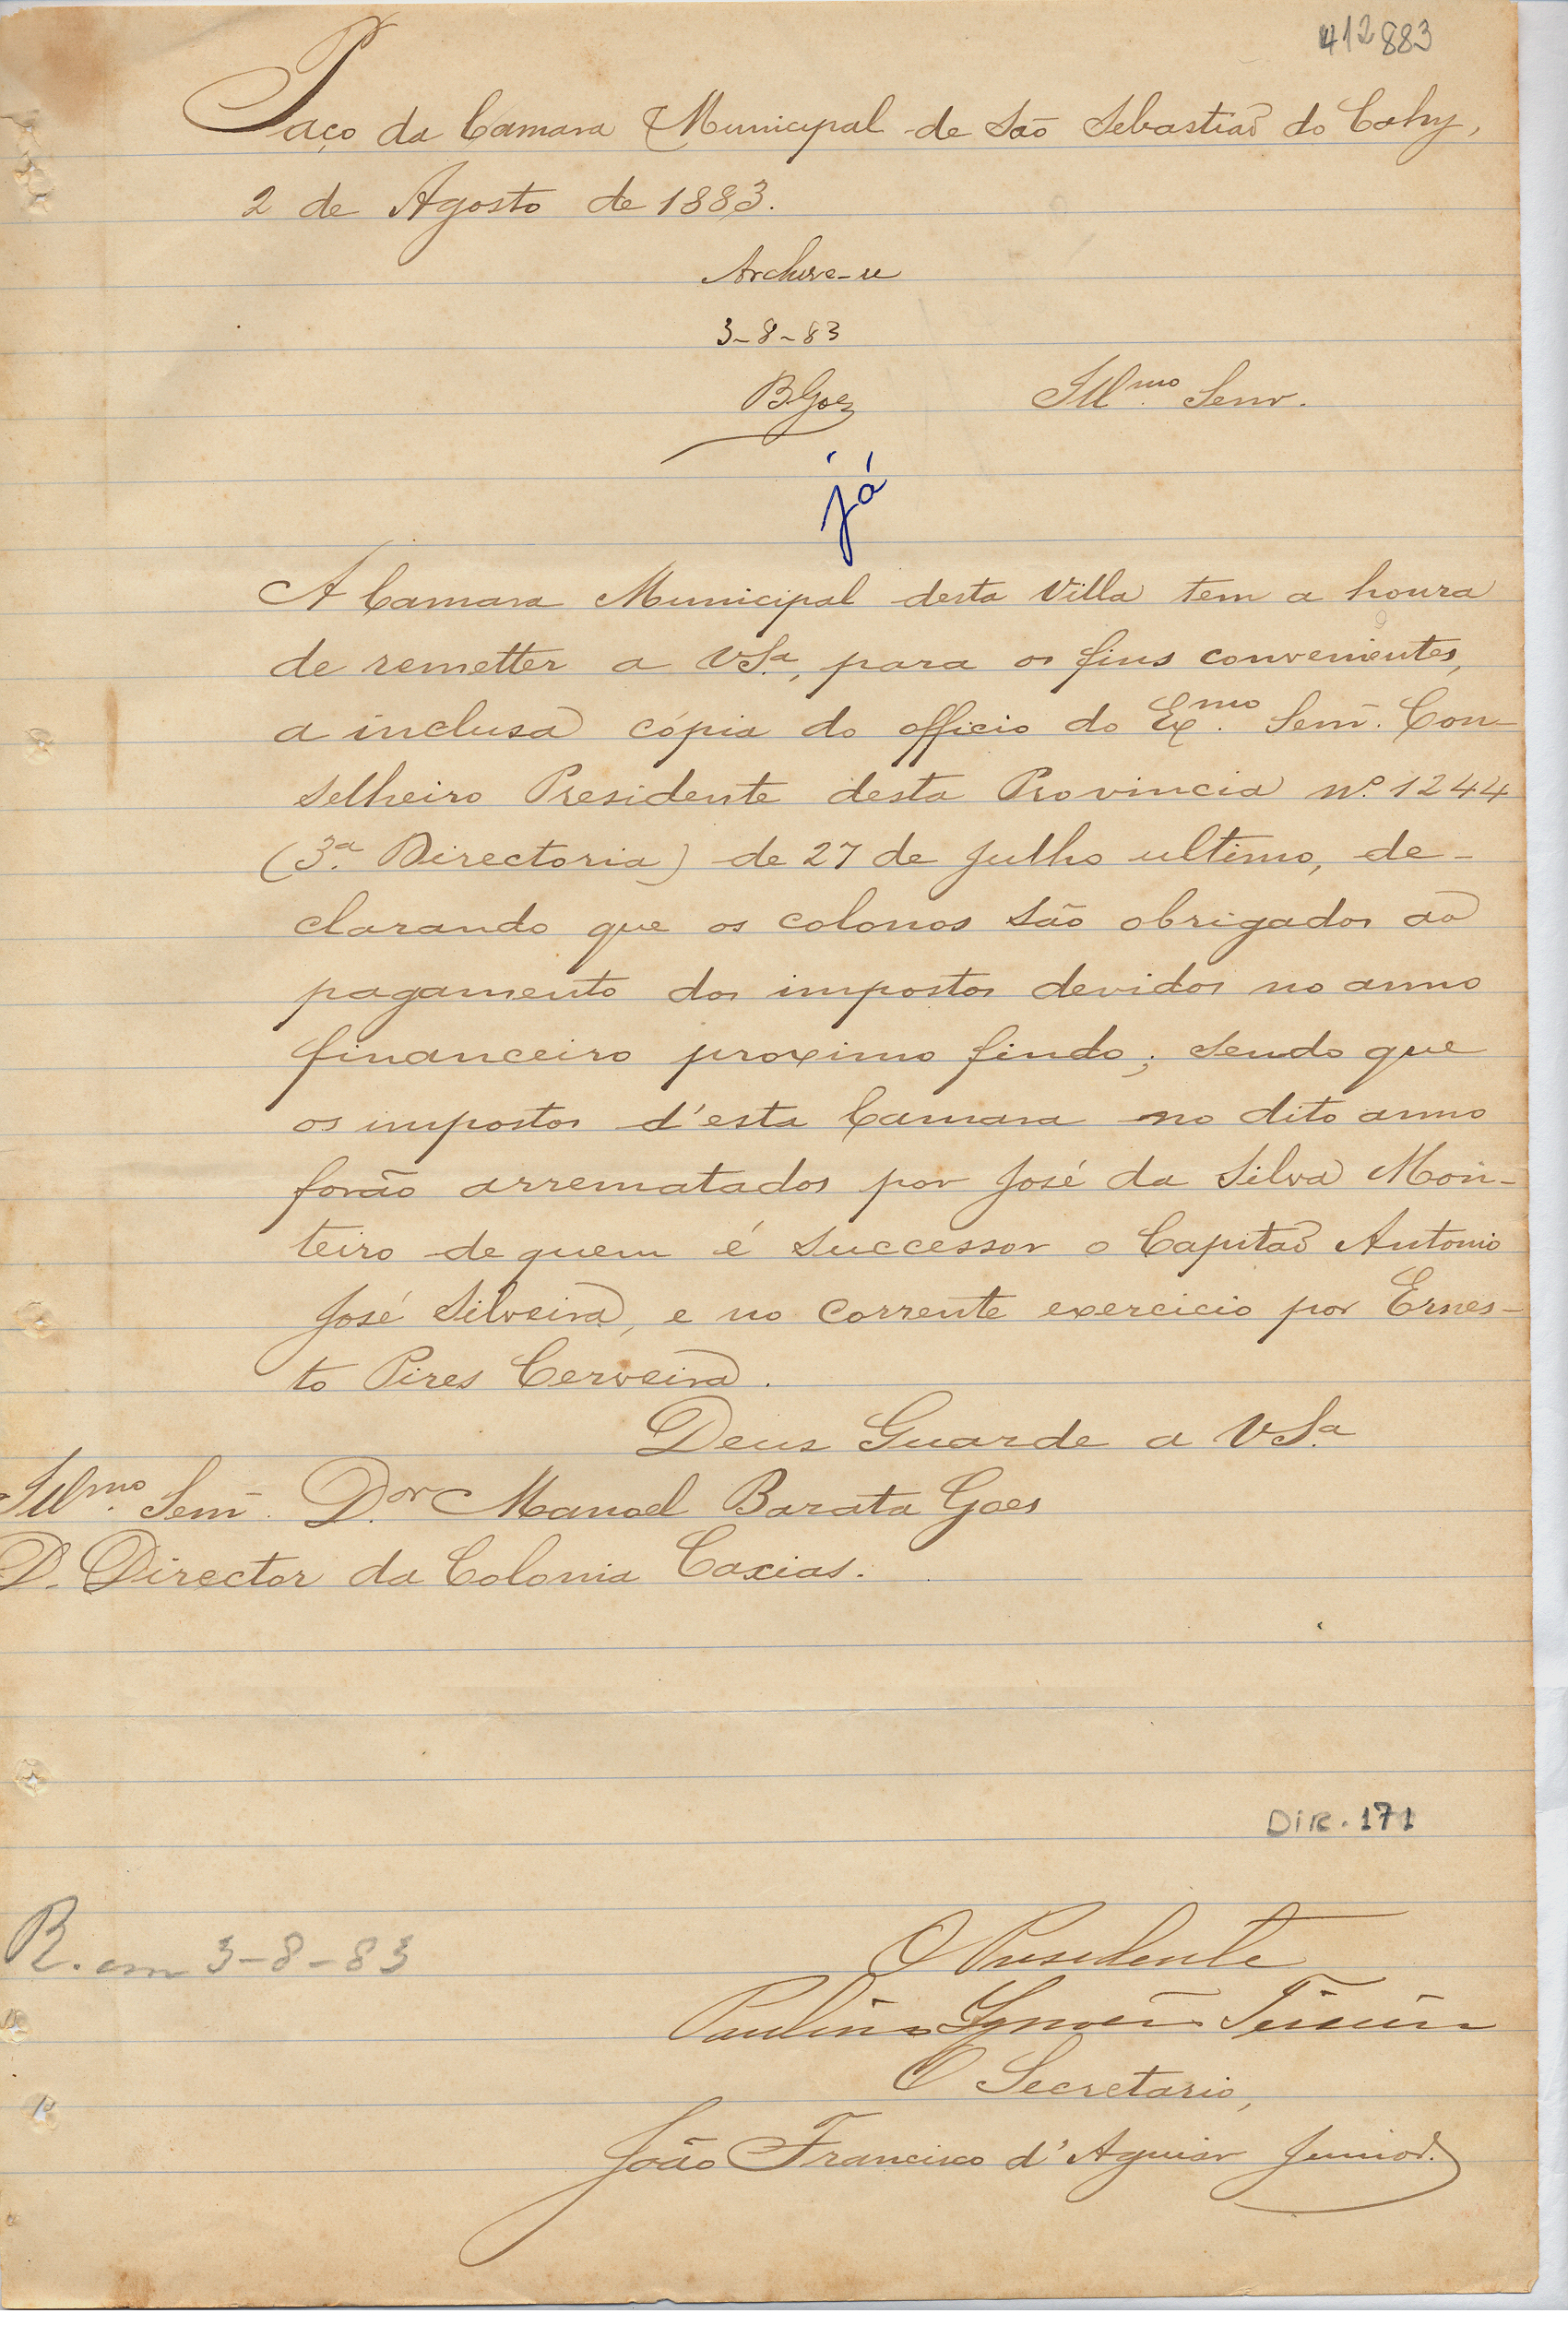 412883
Paço da Camara Municipal de São Sebastiaõ do Cahy,
2 de Agosto de 1883.
Archive-se
3-8-83
BGoes
Illmo. Senr.
já
A Camara Municipal desta Villa tem a honra
de remetter a VSa., para os fins convenientes,
a inclusa cópia do officio do Exmo. Senr. Con-
selheiro Presidente desta Provincia nº. 1244
(3a. Directoria) de 27 de Julho ultimo, de-
clarando que os colonos são obrigados ao
pagamento dos impostos devidos no anno
financeiro proximo findo; sendo que
os impostos d'esta Camara no dito anno
forão arrematados por José da Silva Mon-
teiro de quem é successor o Capitaõ Antonio
José Silveira, e no corrente exercicio por Ernes-
to Pires Cerveira.
Deus Guarde a VSa.
Illmo. Senr. Dor. Manoel Barata Goes
D. Director da Colonia Caxias.
DIR. 171
R. em 3-8-83
O Presidente
Paulino Ignacio Teixeira
O Secretario,
João Francisco d'Aguiar Junior.